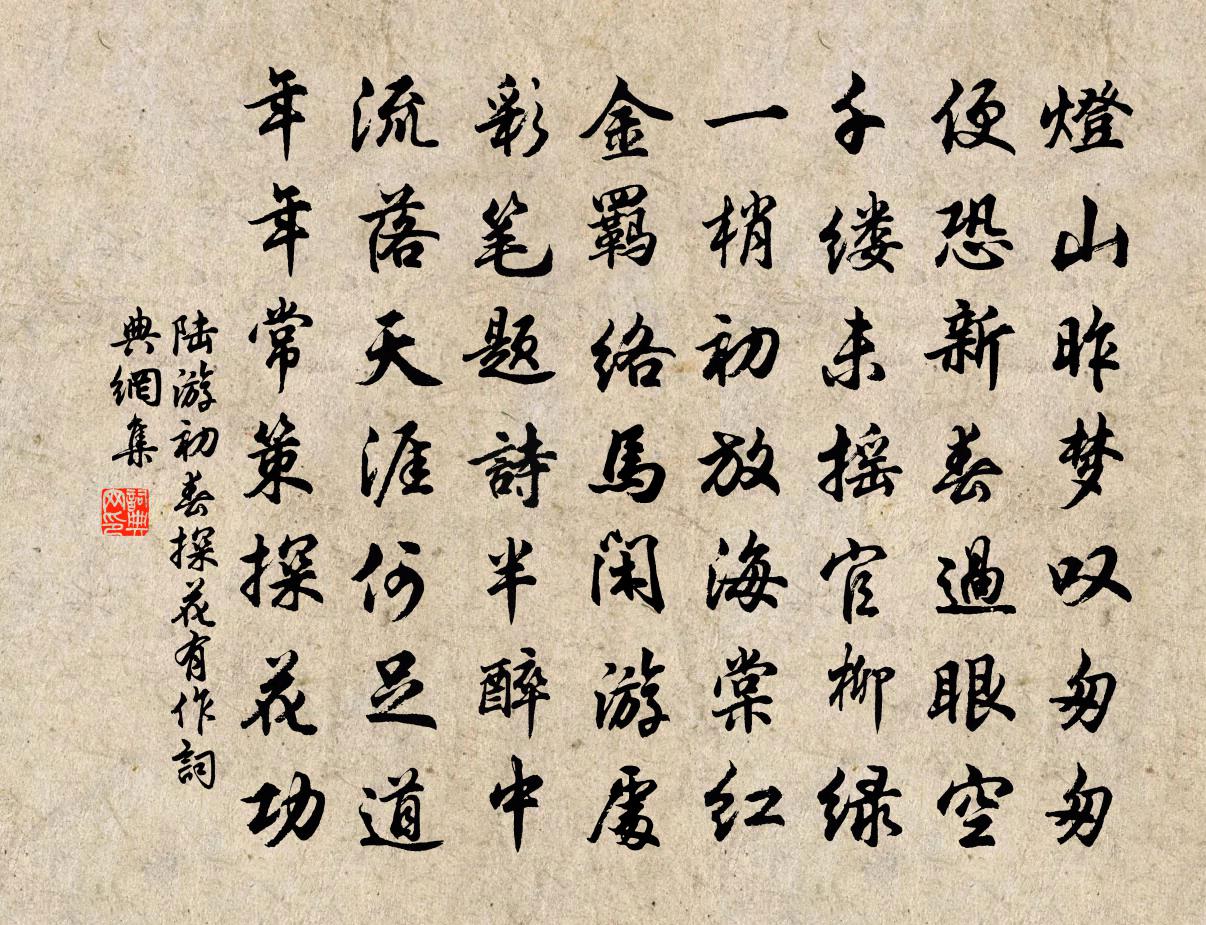 燈山昨梦叹匆匆
便恐新春過眼空
千缕未摇官柳绿
一梢初放海棠红
金羁络馬闲游處
彩笔题詩半醉中
流落天涯何足道
年年常策探花功
陆游初春探花有作詞
典網集
詞典
网印